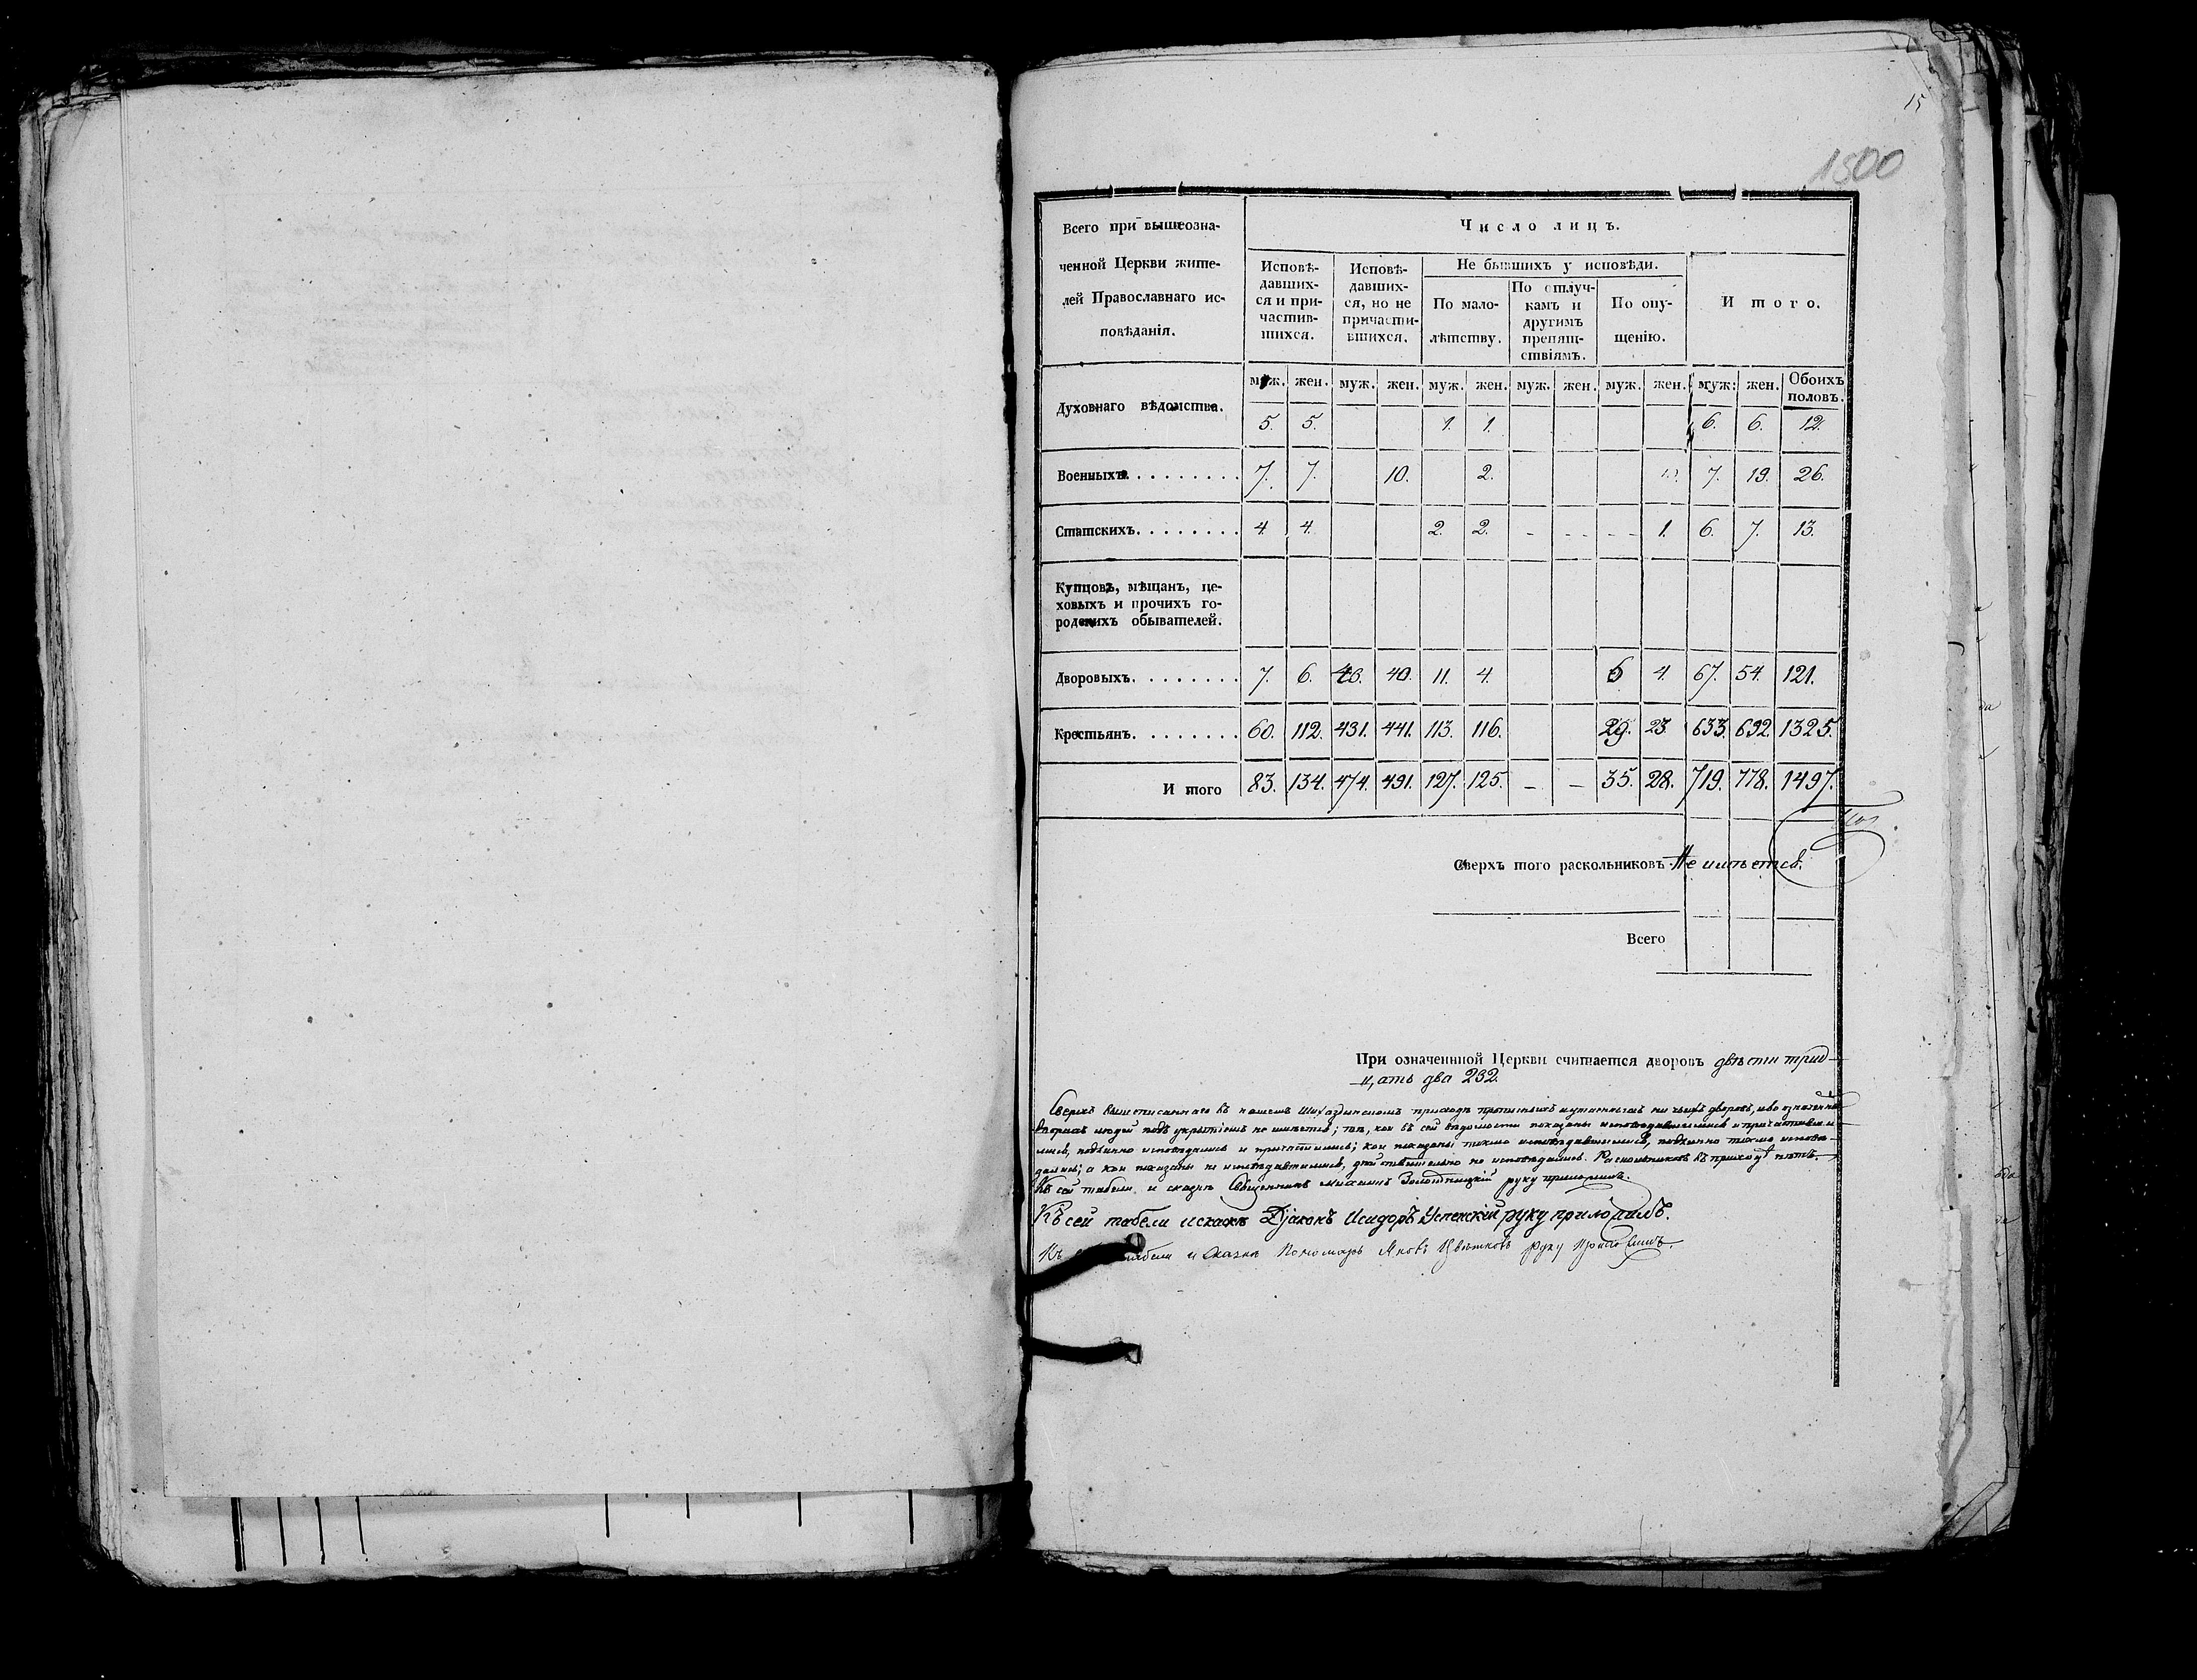 15
1500
Всего при вышеозна-
ченной Церкви жите-
лей Православнаго ис-
повѣданія.
Число лицъ.
Исповѣ-
давших-
ся и при-
частив-
шихся.
Исповѣ-
давших-
ся, но не
причасти-
вшихся.
Не бывшихъ у исповѣди.
По мало-
лѣтству.
По отлуч-
камъ и
другимъ
препят-
ствіямъ.
По опу-
щенію.
Итого.
муж. жен. муж. жен. муж. жен. муж. жен. муж. жен. муж. жен. Обоихъ
половъ.
Духовнаго вѣдомства.
5. 5. 1. 1. 6. 6. 12.
Военныхъ. 7. 7. 10. 2. 7. 19. 26.
Статскихъ. 4. 4. 2. 2. - - - - - 1. 6. 7. 13.
Купцовъ, мѣщанъ, це-
ховыхъ и прочихъ го-
родскихъ обывателей.
Дворовыхъ. 7. 6. 40. 11. 4. 6 4. 67. 54. 121.
Крестьянъ. 60. 112. 431. 441. 113. 116. 29. 23. 633. 692. 1325.
Итого 83. 134. 474. 491. 127. 125. - - 35. 28. 719. 778. 1497.
Сверхъ того раскольниковъ. Не имѣется.
Всего
При означенной Церкви считается дворовъ двѣсти трид-
цать два 232.
Сверхъ вышеписаннаго въ нашемъ приходѣ прописныхъ и утаенныхъ ни чьихъ дворовъ, и во означенныхъ
дворахъ людей подъ укрытіемъ не имѣется; тѣ, кои въ сей вѣдомости показаны исповѣдавшимися и причастивши-
мись, подлинно исповѣдались и причастились; кои показаны токмо исповѣдавшимися, подлинно токмо исповѣ-
дались; а кои показаны не исповѣдавшимися, дѣйствительно не исповѣдались. Раскольниковъ въ приходѣ нѣтъ.
Къ сей табели и сказкѣ Священникъ Михаилъ руку приложилъ.
Къ сей табели и сказкѣ Діаконъ Исидоръ Успенскій руку приложилъ.
Къ табели и сказкѣ Пономарь Яковъ Цвѣтковъ руку приложилъ.